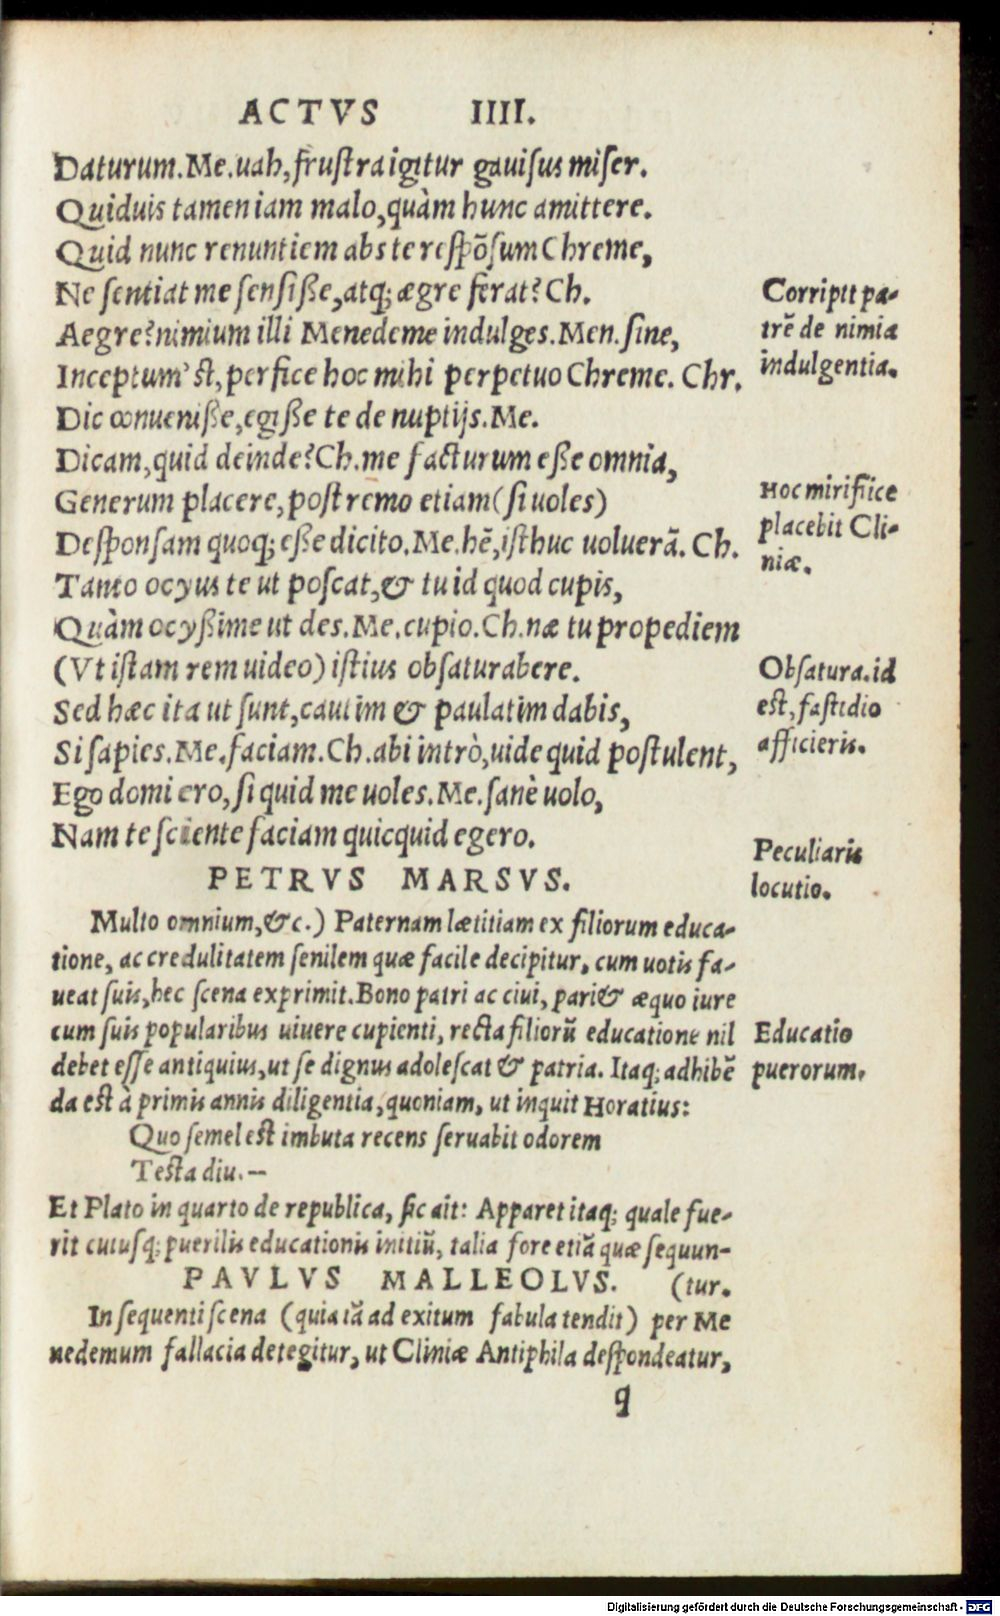 ACTVS IIII.
Daturum. Me. uah, frustra igitur gauisus miser.
Quiduis tamen iam malo, quàm hunc amittere.
Quid nunc renuntiem abs te respõsum Chreme,
Ne sentiat me sensiße, atq; ægre ferat? Ch.
Aegre? nimium illi Menedeme indulges. Men. sine,
Inceptum'st, perfice hoc mihi perpetuo Chreme. Chr.
Dic conueniße, egiße te de nuptijs. Me.
Dicam, quid deinde? Ch. me facturum eße omnia,
Generum placere, postremo etiam (si uoles)
Desponsam quoq; eße dicito. Me. hẽ, isthuc uoluerã. Ch.
Tanto ocyus te ut poscat, & tu id quod cupis,
Quàm ocyßime ut des. Me. cupio. Ch. næ tu propediem
(Vt istam rem uideo) istius obsaturabere.
Sed hæc ita ut sunt, cautim & paulatim dabis,
Si sapies. Me. faciam. Ch. abi intrò, uide quid postulent,
Ego domi ero, si quid me uoles. Me. sanè uolo,
Nam te sciente faciam quicquid egero.
Corripit pa-
trẽ de nimia
indulgentia.
Hoc mirifice
placebit Cli-
niæ.
Obsatura. id
est, fastidio
afficieris.
Peculiaris
locutio.
PETRVS MARSVS.
Multo omnium, &c.) Paternam lætitiam ex filiorum educa-
tione, ac credulitatem senilem quæ facile decipitur, cum uotis fa-
ueat suis, hec scena exprimit. Bono patri ac ciui, pari & æquo iure
cum suis popularibus uiuere cupienti, recta filiorũ educatione nil
debet esse antiquius, ut se dignus adolescat & patria. Itaq; adhibẽ
da est à primis annis diligentia, quoniam, ut inquit Horatius:
Quo semel est imbuta recens seruabit odorem
Testa diu.—
Et Plato in quarto de republica, sic ait: Apparet itaq; quale fue-
rit cuiusq; puerilis educationis initiũ, talia fore etiã quæ sequun-
(tur.
Educatio
puerorum.
PAVLVS MALLEOLVS.
In sequenti scena (quia iã ad exitum fabula tendit) per Me
nedemum fallacia detegitur, ut Cliniæ Antiphila despondeatur,
q
Digitalisierung gefördert durch die Deutsche Forschungsgemeinschaft - DFG